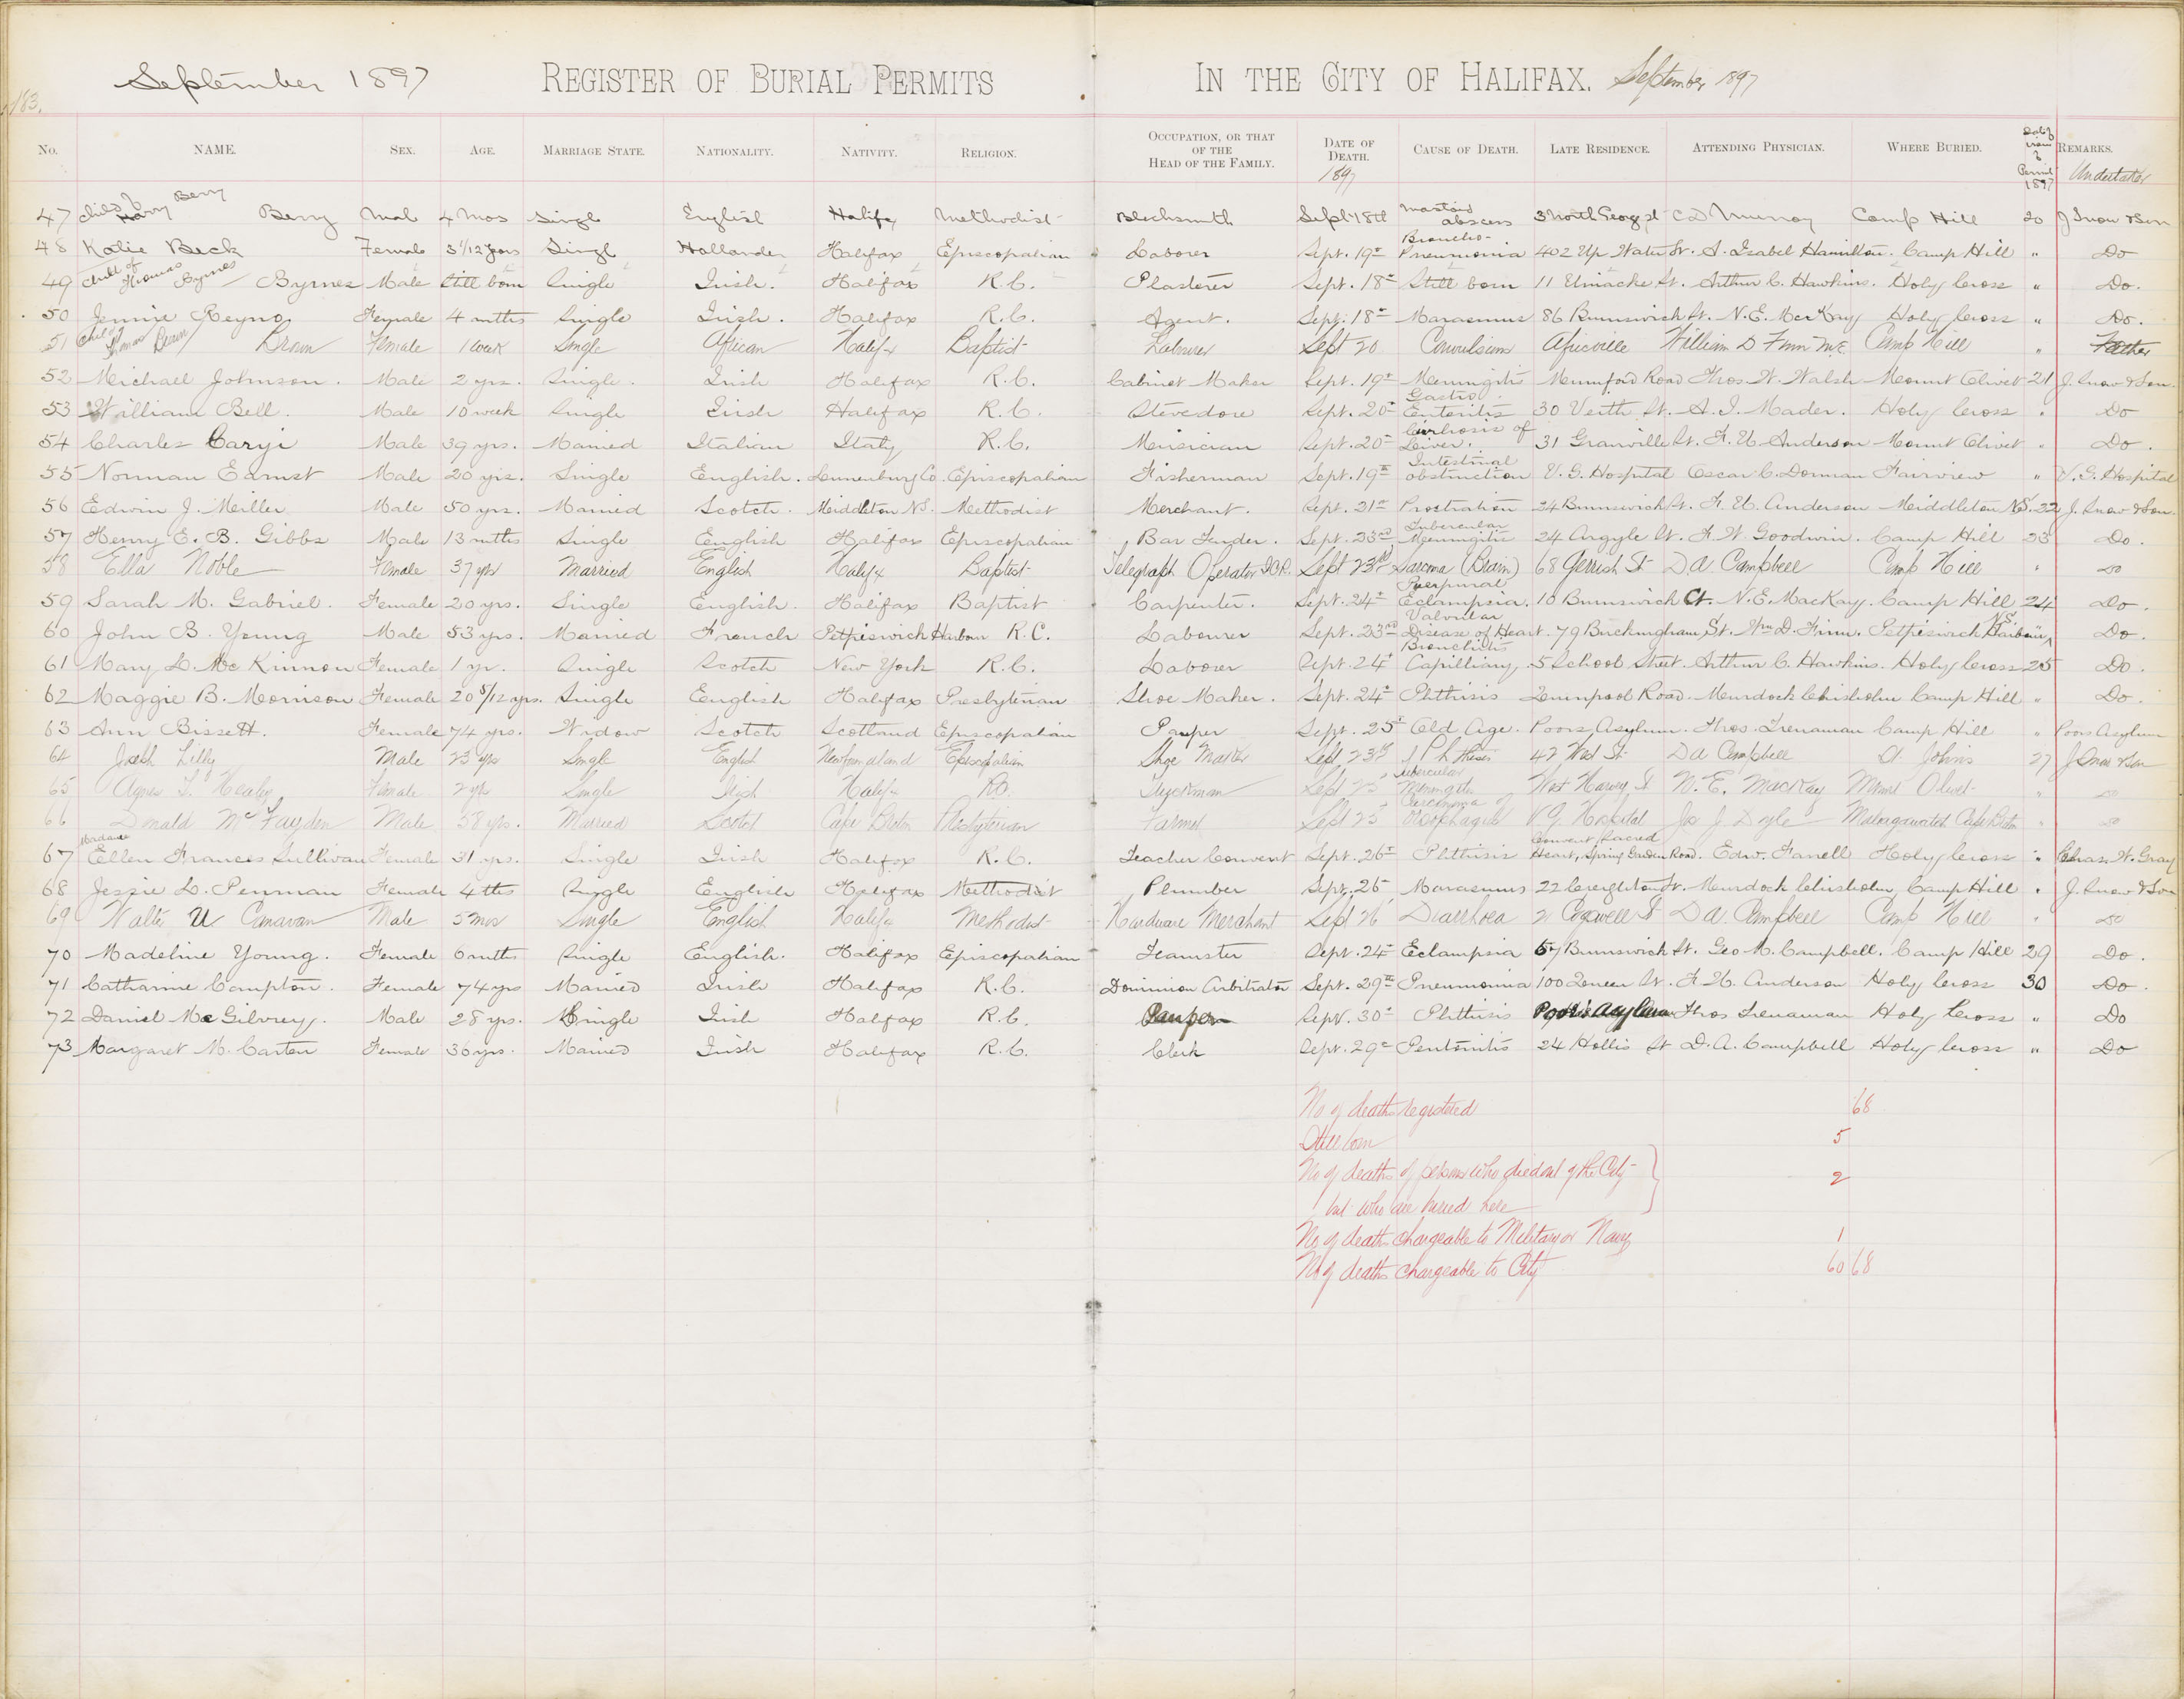 September 1897 REGISTER OF BURIAL PERMITS IN THE CITY OF HALIFAX. September 1897
183.
No. NAME. SEX. AGE. MARRIAGE STATE. NATIONALITY. NATIVITY. RELIGION. OCCUPATION, OR THAT OF THE HEAD OF THE FAMILY. DATE OF DEATH. 1897 CAUSE OF DEATH. LATE RESIDENCE. ATTENDING PHYSICIAN. WHERE BURIED. Permit 1897 REMARKS. Undertaker
47 Child of Harry Berry Berry Mal 4 Mos Single English Halifx Methodist Blacksmith Sept 18th Mastoid abscess 3 North George St C D Murray Camp Hill 20 J Snow & Son
48 Katie Beck Female 3 1/12 years Singl Hollander Halifax Episcopalian Laborer Sept. 19th Broncho-Pneumonia 402 Up Water St. A. Isabel Hamilton. Camp Hill " Do
49 Child of Thomas Byrnes Byrnes Male Still born Single Irish. Halifax R.C. Plasterer Sept. 18th Still born 11 Elmiacke St. Arthur C. Hawkins. Holy Cross " Do.
50 Jennie Reyno. Female 4 mths Single Irish. Halifax R.C. Agent. Sept. 18th Marasmus 86 Brunswick St. N.E. MacKay Holy Cross " Do.
51 Child of Thomas Brown Brown Female 1 week Single African Halifx Baptist Labourer Sept 20 Convulsions Africville William D Finn M.E. Camp Hill " Father
52 Michael Johnson. Male 2 yrs. Single. Irish Halifax R.C. Cabinet Maker Sept. 19th Meningitis Mumford Road Thos. W. Walsh Mount Olivet 21 J. Snow & Son.
53 William Bell. Male 10 week Single Irish Halifax R.C. Stevedore Sept. 20th Gastro Enteritis 30 Veith St. A. I. Mader. Holy Cross " Do
54 Charles Caryi Male 39 yrs. Married Italian Italy R.C. Musician Sept. 20th Cirrhosis of Liver. 31 Granville St. F. U. Anderson Mount Olivet " Do.
55 Norman Earnst Male 20 yrs. Single English. Lunenburg Co. Episcopalian Fisherman Sept. 19th Intestinal obstruction V. G. Hospital Oscar C. Dorman Fairview " V. G. Hospital
56 Edwin J. Miller Male 50 yrs. Married Scotch. Middleton N.S. Methodist Merchant. Sept. 21st Prostration 24 Brunswick St. F. U. Anderson Middleton N.S. 22 J. Snow & Son.
57 Henry E. B. Gibbs Male 13 mths Single English Halifax Episcopalian Bar Tender. Sept. 23rd Tubercular Meningitis 24 Argyle St. F. W. Goodwin. Camp Hill 23 Do.
58 Ella Noble Female 37 yrs Married English Halifx Baptist Telegraph Operator I.C.R. Sept 23rd Sarcoma (Brain) 68 Gerrish St D. A. Campbell Camp Hill " Do
59 Sarah M. Gabriel. Female 20 yrs. Single English. Halifax Baptist Carpenter. Sept. 24th Puerpural Eclampsia. 10 Brunswick Ct. N. E. MacKay. Camp Hill 24 Do.
60 John B. Young Male 53 yrs. Married French Petpiswick Harbour R.C. Labourer Sept. 23rd Valvular Disease of Heart. 79 Buckingham St. Wm. D. Finn. Petpiswick Harbour N.S. " Do.
61 Mary L. McKinnon Female 1 yr. Single Scotch New York R.C. Laborer Sept. 24th Bronchitis Capilliary. 5 School Street. Arthur C. Hawkins. Holy Cross 25 Do.
62 Maggie B. Morrison Female 20 5/12 yrs. Single English Halifax Presbyterian Shoe Maker. Sept. 24th Phthisis Liverpool Road. Murdock Chisholm Camp Hill " Do.
63 Ann Bissett. Female 74 yrs. Widow Scotch Scotland Episcopalian Pauper Sept. 25th Old Age. Poors Asylum. Thos. Trenaman Camp Hill " Poors Asylum
64 Joseph Lilly Male 23 yrs Single English Newfoundland Episcopalian Shoe Maker Sept 23rd Phthisis 42 West St D A Campbell St. Johns 27 J Snow & Son
65 Agnes T. Healey Female 2 yrs Single Irish Halifx RC. Truckman Sept 25 Tubercular Meningitis West Harvey St N. E. MacKay Mount Olivet " Do
66 Donald McFayden Male 58 yrs. Married Scotch Cape Breton Presbyterian Farmer Sept 25 Carcinoma of Oesophagus V G Hospital Jas J Doyle Cape Breton " Do
67 Ellen Frances Sullivan Female 31 yrs. Single Irish Halifax R.C. Teacher Convent Sept. 26th Phthisis Convent Sacred Heart, Spring Garden Road. Edw. Farrell Holy Cross " Chas. W. Gray
68 Jessie L. Penman Female 4 ths Single English Halifax Methodist Plumber Sept. 25 Marasmus 22 Creighton St. Murdock Chisholm Camp Hill " J. Snow & Son
69 Walter U Canavan Male 5 mos Single English Halifx Methodist Hardware Merchant Sept 26 Diarrhoea 2 Cogswell St D A Campbell Camp Hill " Do
70 Madeline Young. Female 6 mths Single English. Halifax Episcopalian Teamster Sept. 24th Eclampsia 67 Brunswick St. Geo M. Campbell. Camp Hill 29 Do.
71 Catharine Compton. Female 74 yrs Married Irish Halifax R.C. Dominion Arbitrator Sept. 29th Pneumonia 100 Queen St. F. U. Anderson Holy Cross 30 Do.
72 Daniel McGilvrey. Male 28 yrs. Single Irish Halifax R.C. Pauper Sept. 30th Phthisis Poor's Asylum Thos Trenaman Holy Cross " Do
73 Margaret M. Carten Female 36 yrs. Married Irish Halifax R.C. Clerk Sept. 29th Peritonitis 24 Hollis St D. A. Campbell Holy Cross " Do
No of deaths registered 68
Still born 5
No of deaths of persons who died out of the City 2
but who are buried here
No of deaths chargeable to Military or Navy 1
No of deaths chargeable to City 60 68